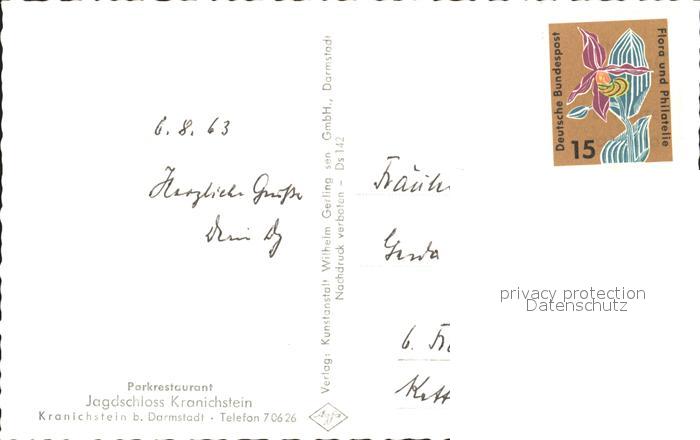 6.8.63
Herzliche Grüße
Dein
Parkrestaurant
Jagdschloss Kranichstein
Kranichstein b. Darmstadt · Telefon 70626
Verlag: Kunstanstalt Wilhelm Gerling sen GmbH., Darmstadt
Nachdruck verboten – Ds 142
Agfa
Deutsche Bundespost
Flora und Philatelie
15
Fräule
Gerda
6. Fr
Kett
privacy protection
Datenschutz